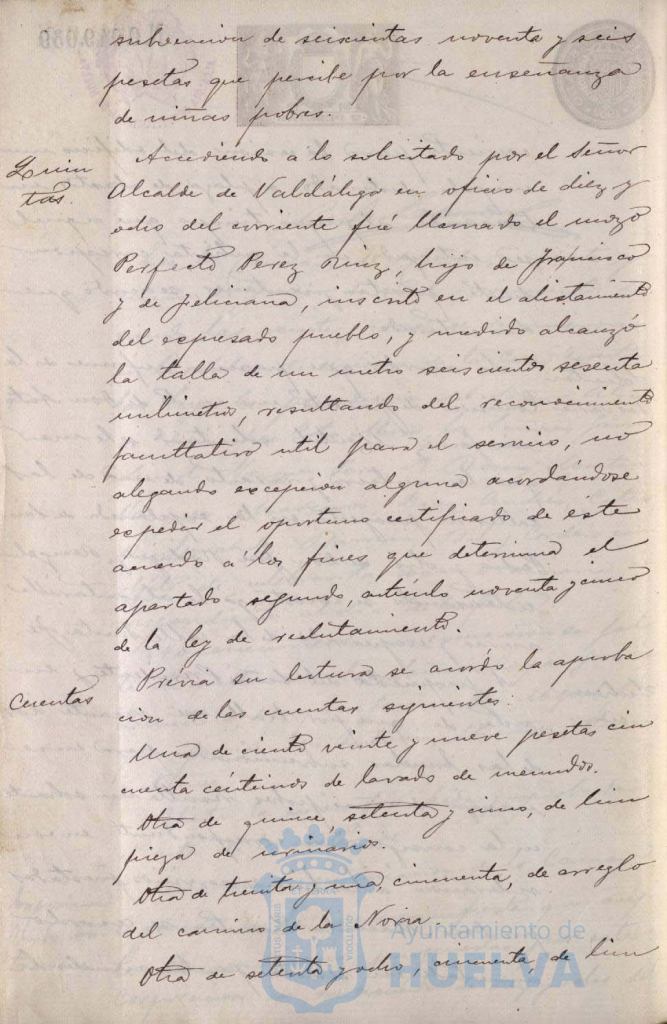 subvencion de seiscientas noventa y seis
pesetas que percibe por la enseñanza
de niñas pobres.
Quin
tas.
Accediendo a lo solicitado por el Señor
Alcalde de Valdáliga en oficio de diez y
ocho del corriente fué llamado el mozo
Perfecto Perez Ruiz, hijo de Francisco
y de Feliciana, inscrito en el alistamiento
del expresado pueblo, y medido alcanzó
la talla de un metro seiscientos sesenta
milimetros, resultando del reconocimiento
facultativo util para el servicio, no
alegando excepcion alguna acordándose
expedir el oportuno certificado de éste
acuerdo á los fines que determina el
apartado segundo, artículo noventa y cinco
de la ley de reclutamiento.
Cuentas
Prévia su lectura se acordó la aproba
cion de las cuentas siguientes.
Una de ciento veinte y nueve pesetas cin
cuenta céntimos de lavado de menudos.
Otra de quince, setenta y cinco, de lim
pieza de urinarios.
Otra de treinta y una, cincuenta, de arreglo
del camino de la Noria.
Otra de setenta y ocho, cincuenta, de lim
Ayuntamiento de
HUELVA